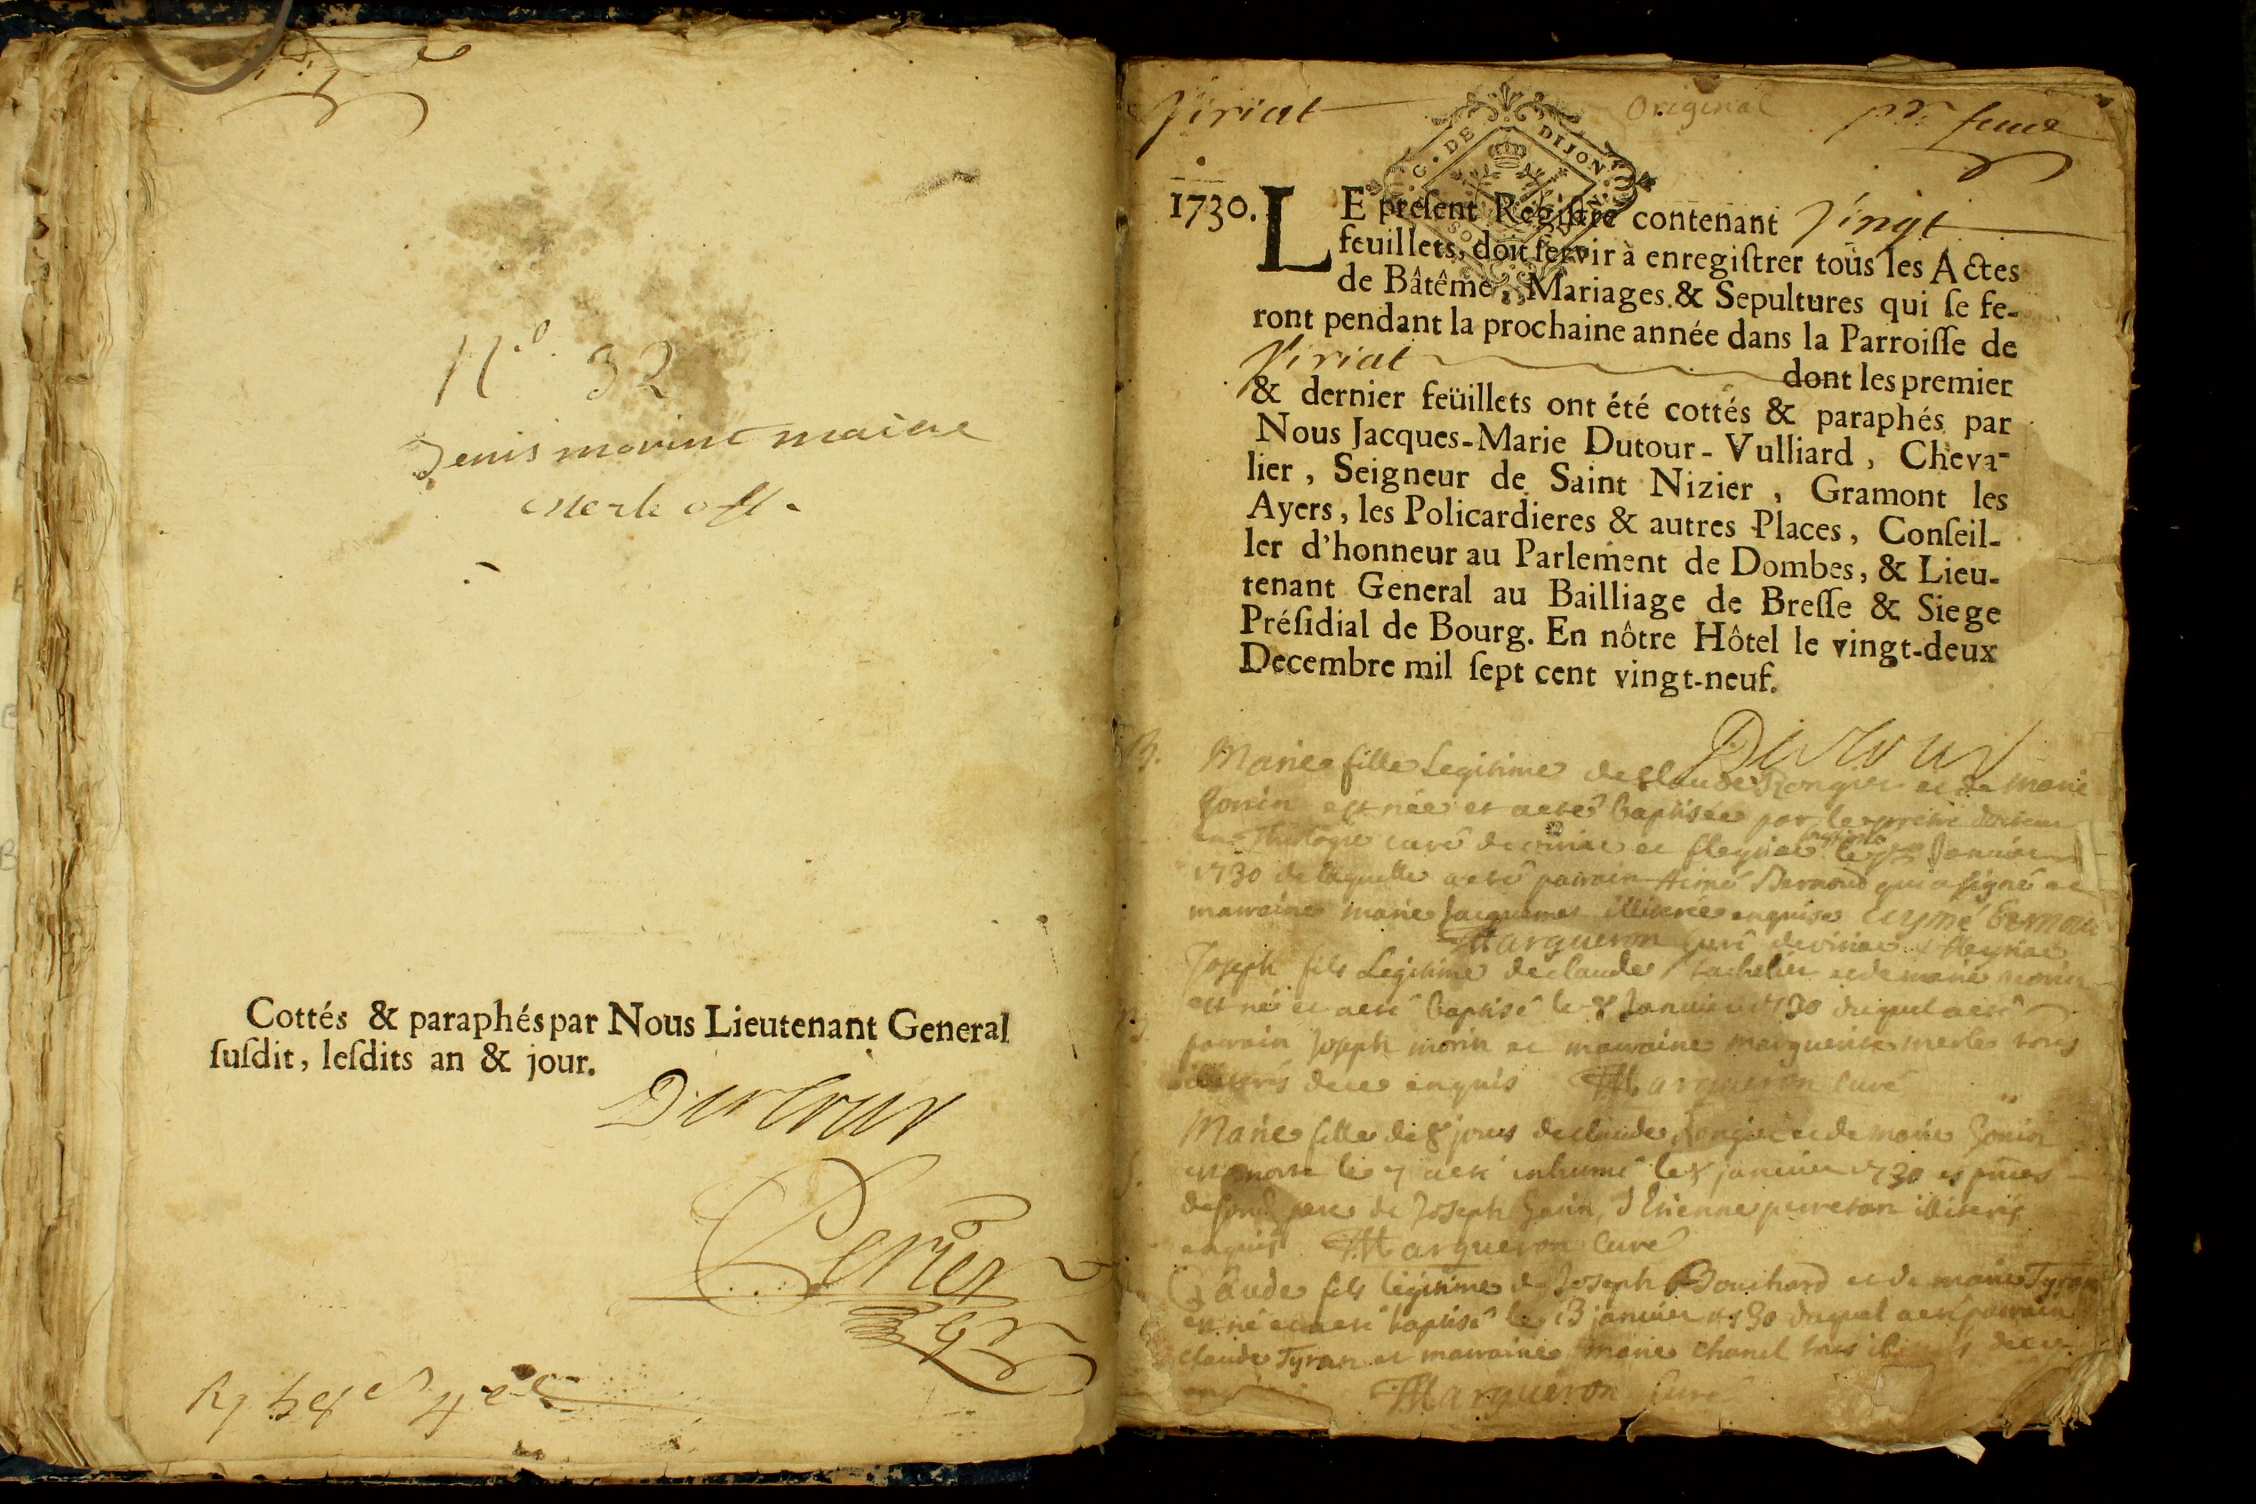 N.o 32
Denis morint maire
merle off.
Cottés & paraphés par Nous Lieutenant General
ſuſdit, leſdits an & jour.
Dutour
Perier
Viriat
Original
pr. feuil
G. DE DIJON
1730. LE preſent Regiſtre contenant Vingt
feuillets, doit ſervir à enregiſtrer toûs les Actes
de Bâtême, Mariages & Sepultures qui ſe fe-
ront pendant la prochaine année dans la Parroiſſe de
Viriat dont les premier
& dernier feüillets ont été cottés & paraphés par
Nous Jacques-Marie Dutour-Vulliard, Cheva-
lier, Seigneur de Saint Nizier, Gramont les
Ayers, les Policardieres & autres Places, Conſeil-
ler d'honneur au Parlement de Dombes, & Lieu-
tenant General au Bailliage de Breſſe & Siege
Préſidial de Bourg. En nôtre Hôtel le vingt-deux
Decembre mil ſept cent vingt-neuf.
Dutour
B. Marie fille Legitime de Claude Rongier et de marie
Gonin est née et a eté baptisée par le
en Theologie curé de viriat et fleyriat le Janvier
1730 de laquelle a eté parrain Aimé Bernoud qui a signé et
marraine marie Jacquemet illiterée enquise Eymé bernou
Margueron curé de viriat & fleyriat
Joseph fils Legitime de claude et de marie morin
est né et a eté baptisé le 8 Janvier 1730 duquel a eté
parrain Joseph morin et marraine marguerite merle tous
illiterés de ce enquis Margueron Curé
Marie fille de 8 jours de claude Rongier et de marie Gonin
est morte le 7 a eté inhumé le 8 janvier 1730 es pnces
de pere de Joseph Gonin, d'Etienne perretan illiterés
enquis Margueron Curé
Claude fils légitime de Joseph Bouchard et de marie Tyran
est né et a eté baptisé le 13 janvier 1730 duquel a eté parrain
claude Tyran et marraine marie chanel tous de ce
Margueron Curé